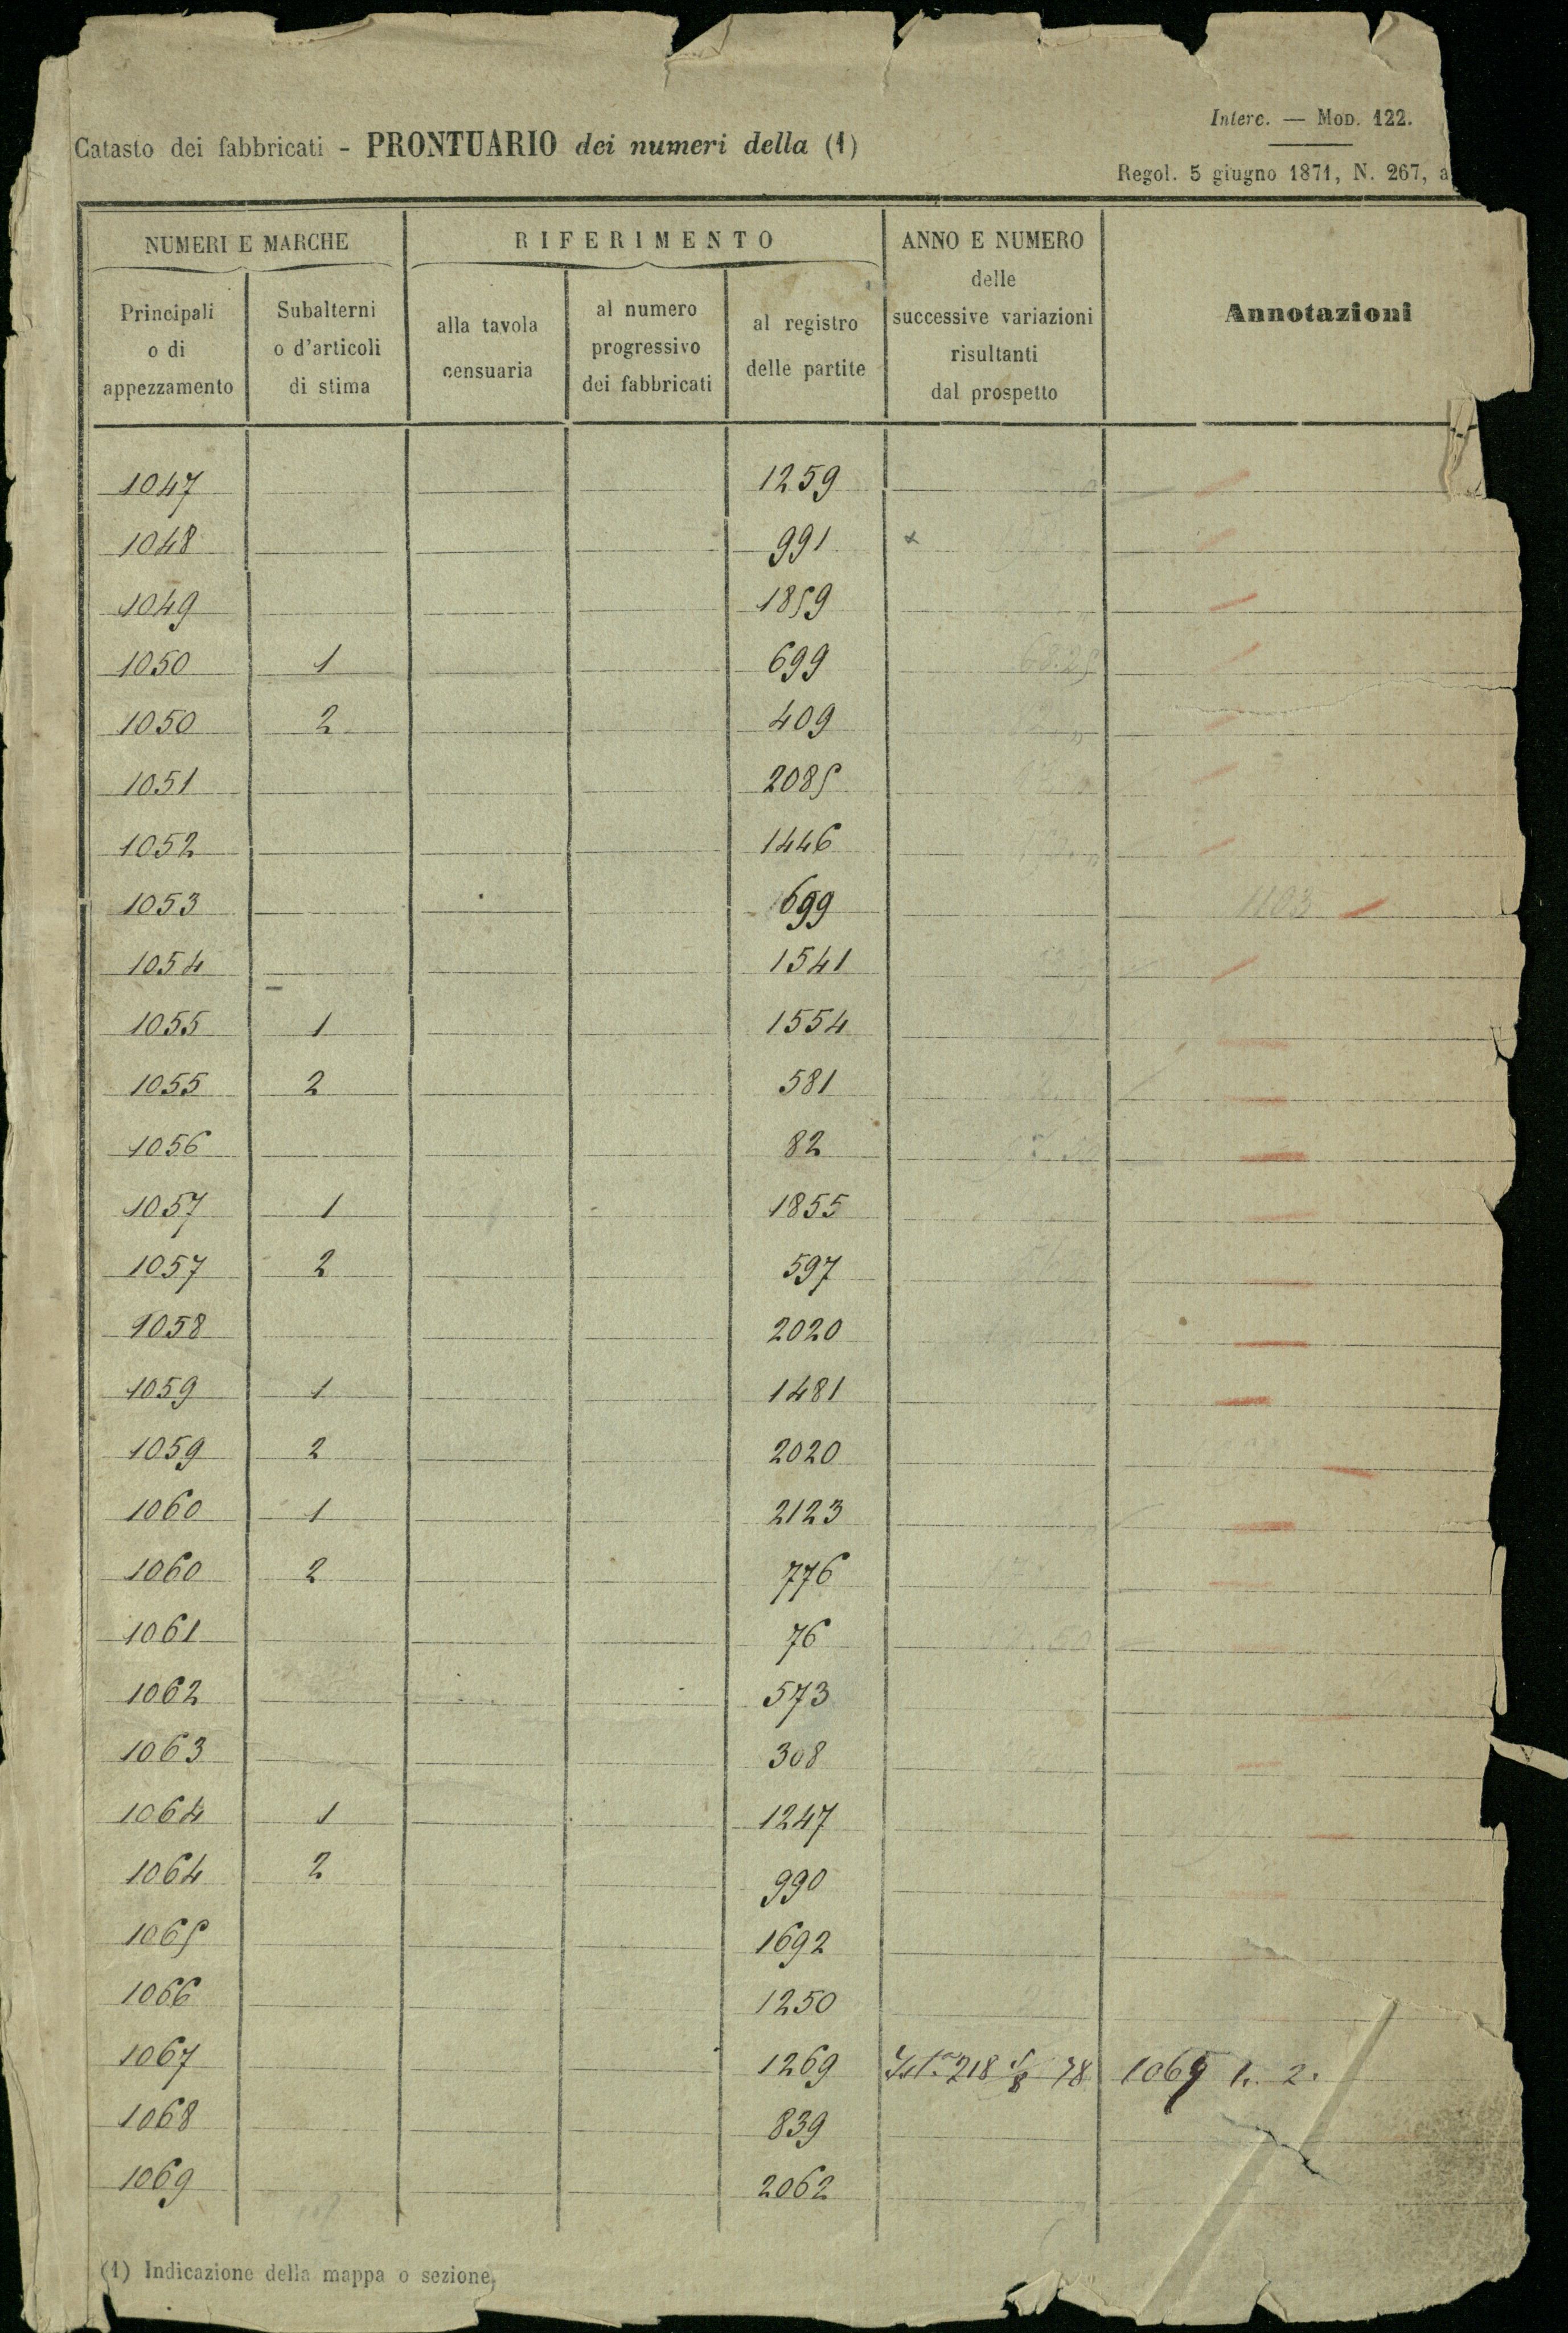 Interc. — Mod. 122.
Catasto dei fabbricati - PRONTUARIO dei numeri della (1)
Regol. 5 giugno 1871, N. 267, a
NUMERI E MARCHE
RIFERIMENTO
ANNO E NUMERO
delle
successive variazioni
risultanti
dal prospetto
Annotazioni
Principali
o di
appezzamento
Subalterni
o d'articoli
di stima
alla tavola
censuaria
al numero
progressivo
dei fabbricati
al registro
delle partite
1047 1259
1048 991 x
1049 1859
1050 1 699
1050 2 409
1051 2085
1052 1446
1053 699 1103
1054 1541
1055 1 1554
1055 2 581
1056 82
1057 1 1855
1057 2 597
1058 2020
1059 1 1481
1059 2 2020
1060 1 2123
1060 2 776
1061 76
1062 573
1063 308
1064 1 1247
1064 2 990
1065 1692
1066 1250
1067 1269 218 5/8 78 1069 1. 2.
1068 839
1069 2062
(1) Indicazione della mappa o sezione.